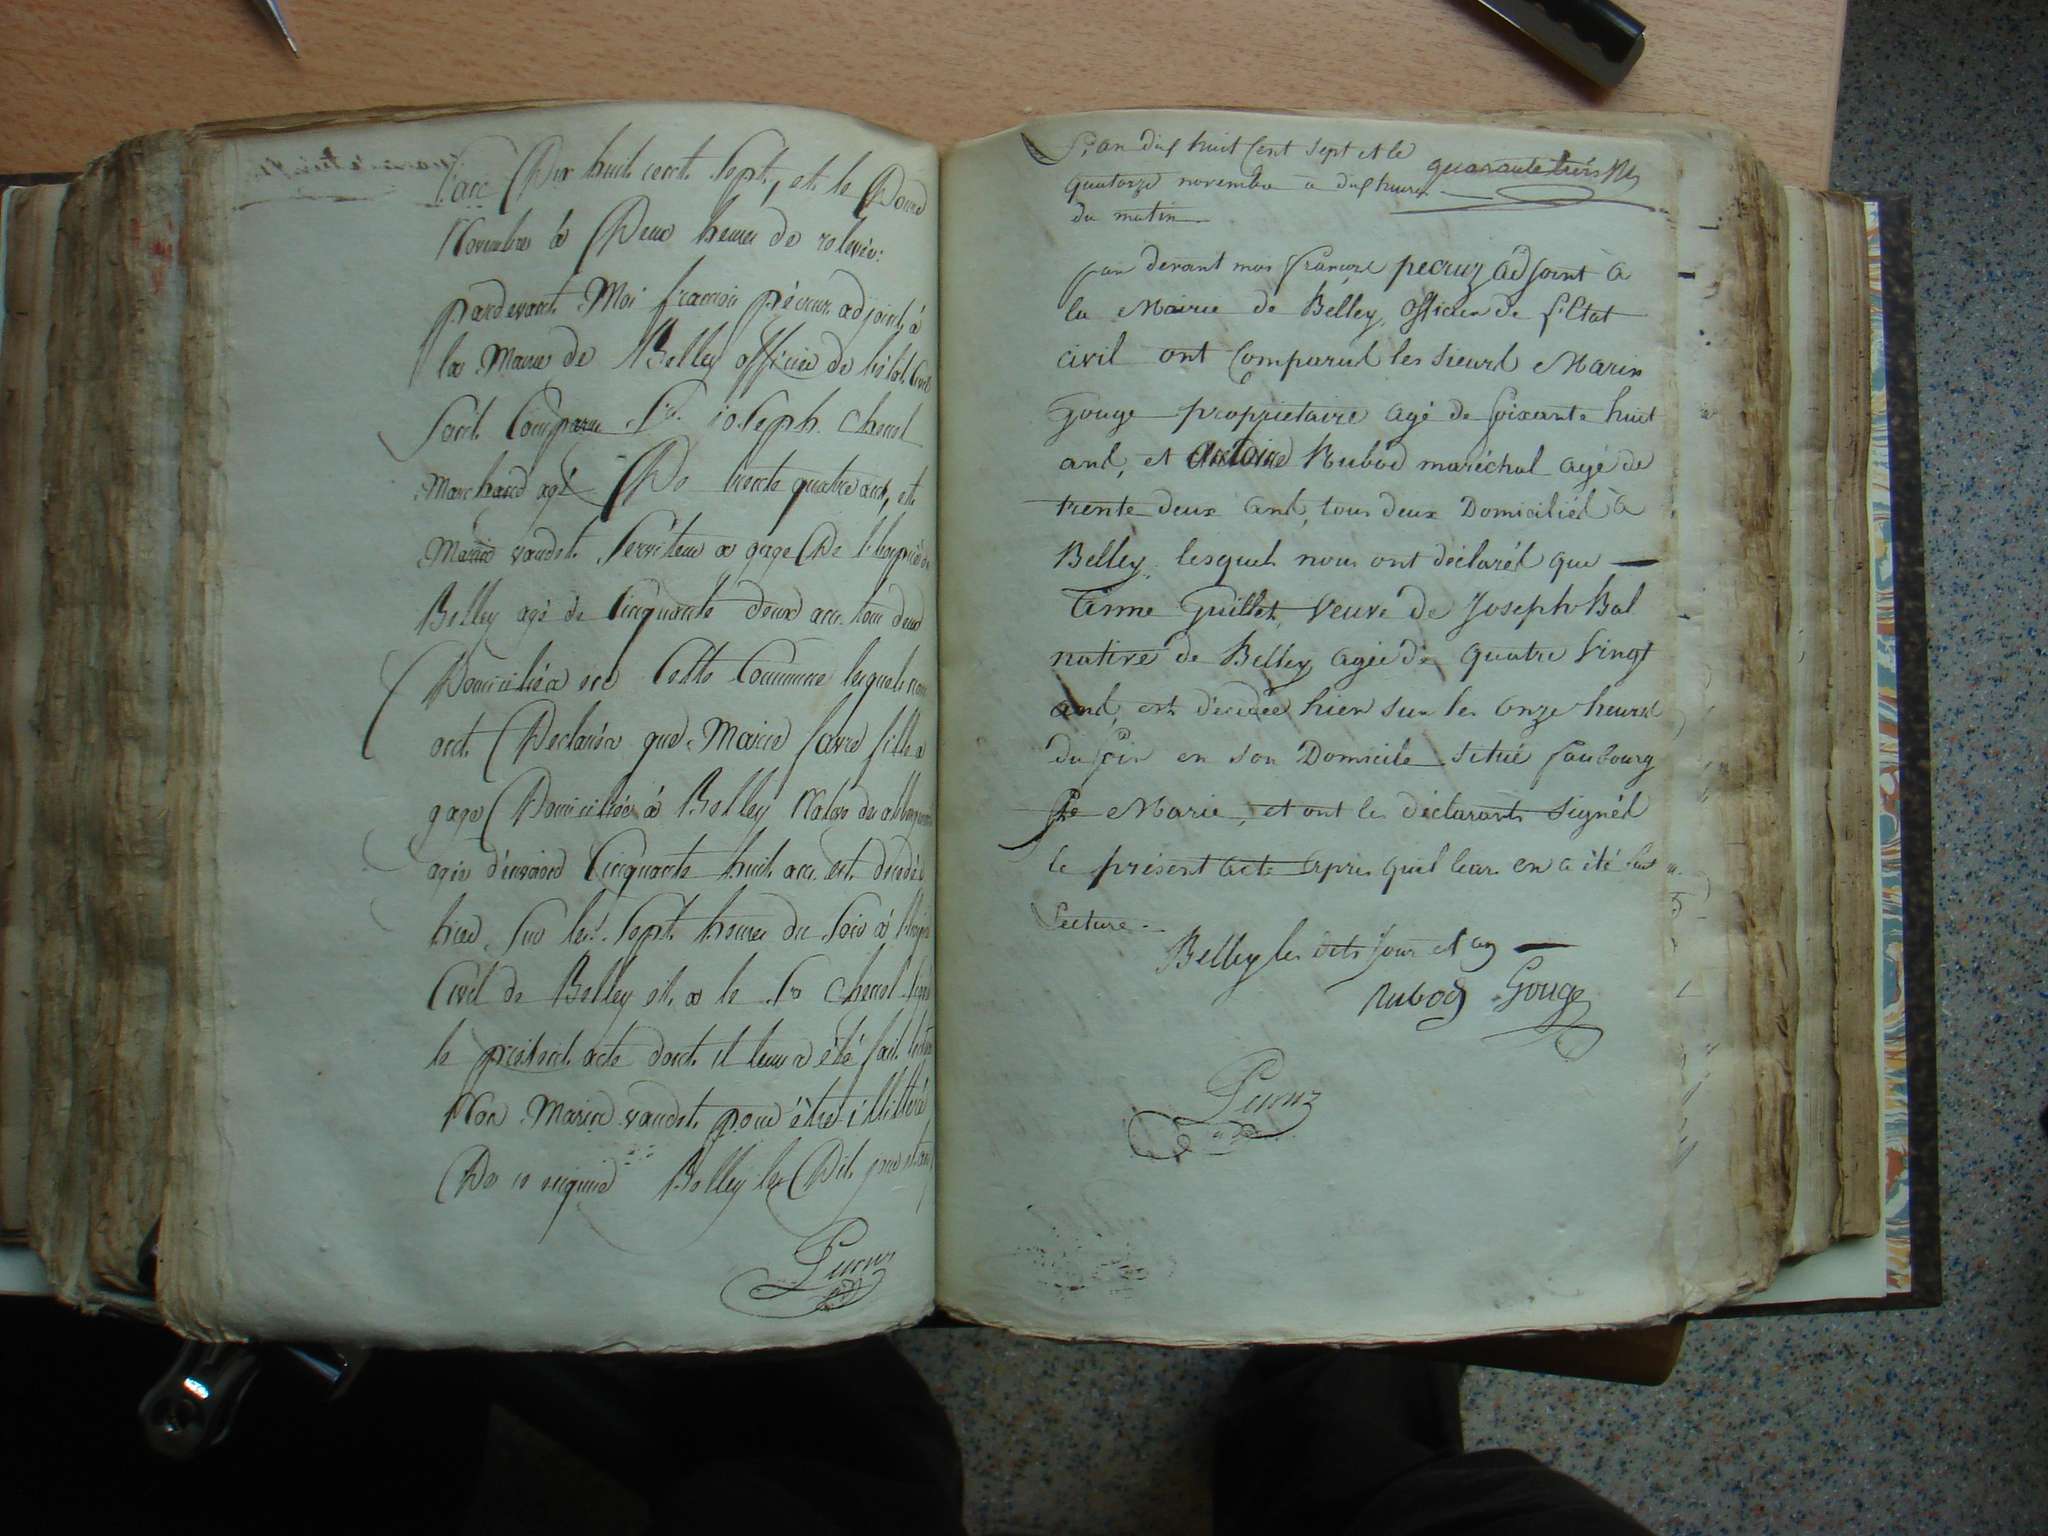 L'an Dix huit cent Sept, et le Douze
Novembre à Deux heures de relevée:
pardevant Moi françois pécruz adjoint à
la Mairie de Belley officier de l'état Civil
Sont Comparu Sr. joseph Chenel
Marchand agé De trente quatre ans, et
Marin vaudet Serviteur à gage De l'hospice de
Belley agé de Cinquante deux ans tous deux
Domiciliés en Cette Commune lesquels nous
ont Déclarés que Marie favre fille à
gage Domiciliée à Belley Native de
agée d'environ Cinquante huit ans est décédée
hier Sur les Sept heures du Soir à l'hospice
Civil de Belley et a le Sr Chenel Signé
le présent acte dont il leur a été fait lecture
Non Marin vaudet pour être illitéré
De ce enquis Belley les Dits jour et an
Pécruz
quarante trois
L'an dix huit Cent Sept et le
quatorze novembre à dix heures
du matin
par devant moi françois pecruz adjoint à
la Mairie de Belley, Officier de l'Etat
civil ont Comparus les Sieurs Marin
Gouge propriétaire agé de Soixante huit
ans, et Antoine Rubod maréchal agé de
trente deux ans, tous deux Domiciliés à
Belley, lesquels nous ont déclarés que
Anne Guillet, Veuve de Joseph Bal
native de Belley agée de quatre Vingt
ans, est décédée hier sur les onze heures
du soir en son Domicile situé faubourg
Ste Marie, et ont les déclarants signés
le présent acte après qu'il leur en a été fait
Lecture
Belley les dits Jour et an
Rubod Gouge
Pécruz